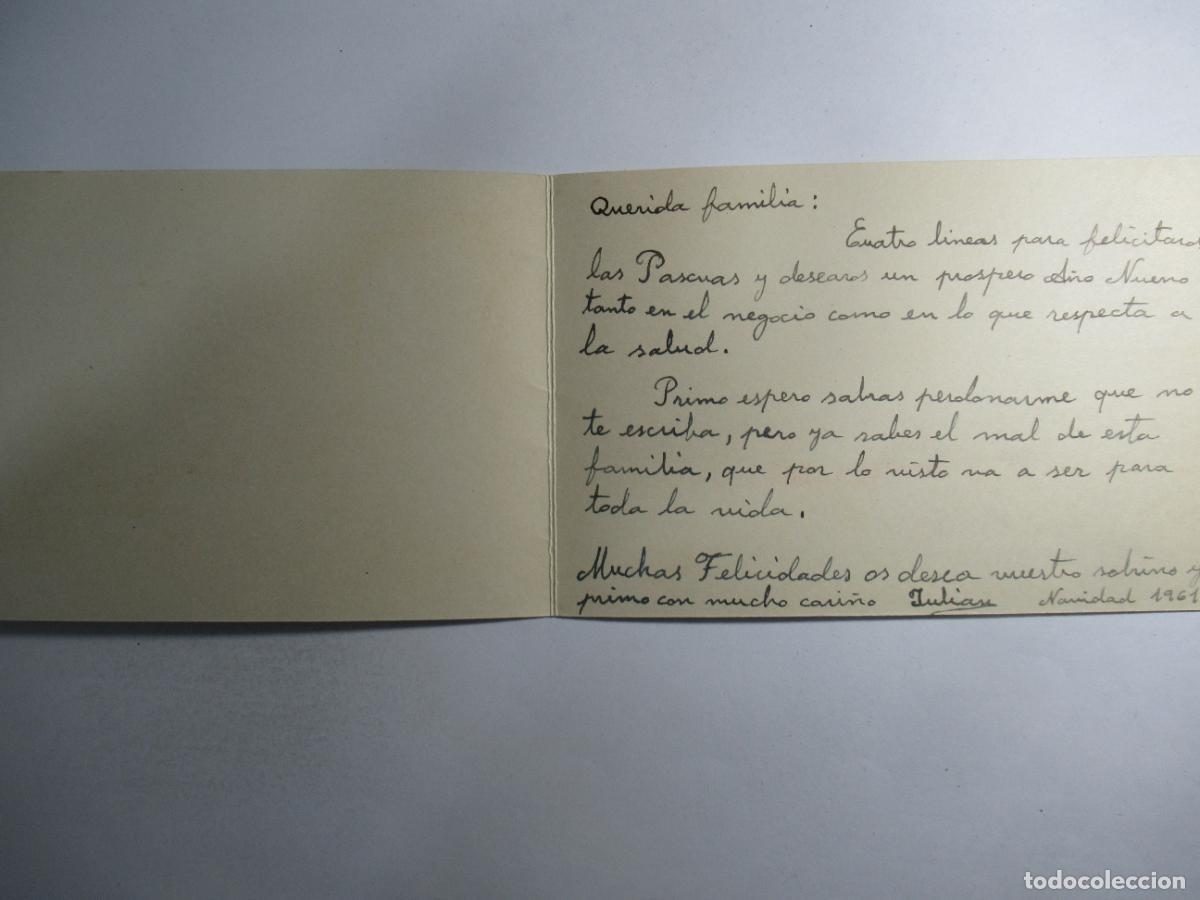 Querida familia:
Cuatro lineas para felicitaros
las Pascuas y desearos un prospero Año Nuevo
tanto en el negocio como en lo que respecta a
la salud.
Primo espero sabras perdonarme que no
te escriba, pero ya sabes el mal de esta
familia, que por lo visto va a ser para
toda la vida.
Muchas Felicidades os desea vuestro sobrino y
primo con mucho cariño Julian Navidad 1961
todocoleccion